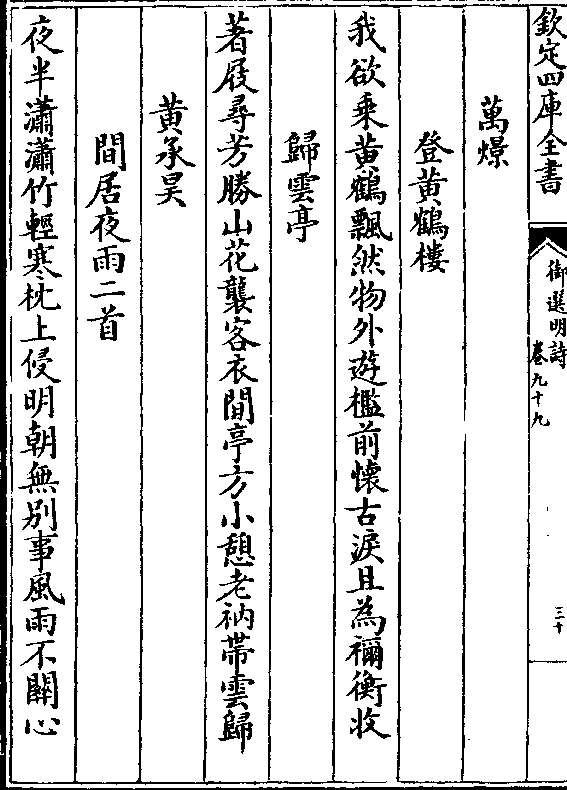 欽定四庫全書
御選明詩
卷九十九
三十
萬燝
登黃鶴樓
我欲乘黃鶴飄然物外遊檻前懷古淚且為禰衡收
歸雲亭
著屐尋芳勝山花襲客衣閒亭方小憩老衲帶雲歸
黃承昊
間居夜雨二首
夜半瀟瀟竹輕寒枕上侵明朝無別事風雨不關心